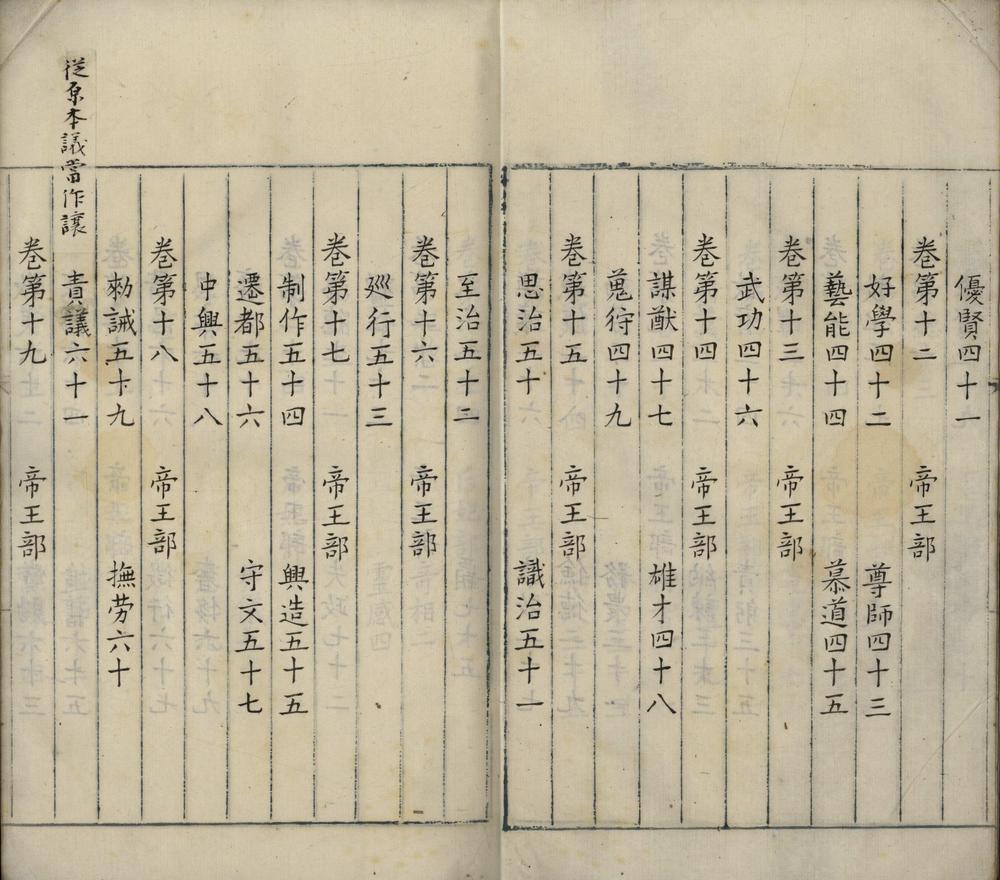 優賢四十一
卷第十二 帝王部
好學四十二 尊師四十三
藝能四十四 慕道四十五
卷第十三 帝王部
武功四十六
卷第十四 帝王部
謀猷四十七 雄才四十八
蒐狩四十九
卷第十五 帝王部
思治五十 識治五十一
至治五十二
卷第十六 帝王部
廵行五十三
卷第十七 帝王部
制作五十四 興造五十五
遷都五十六 守文五十七
中興五十八
卷第十八 帝王部
勑誡五十九 撫劳六十
從原本議當作讓
責議六十一
卷第十九 帝王部